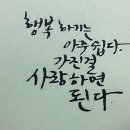 행복 하기는
아주 쉽다.
가진걸
사랑하면
된다